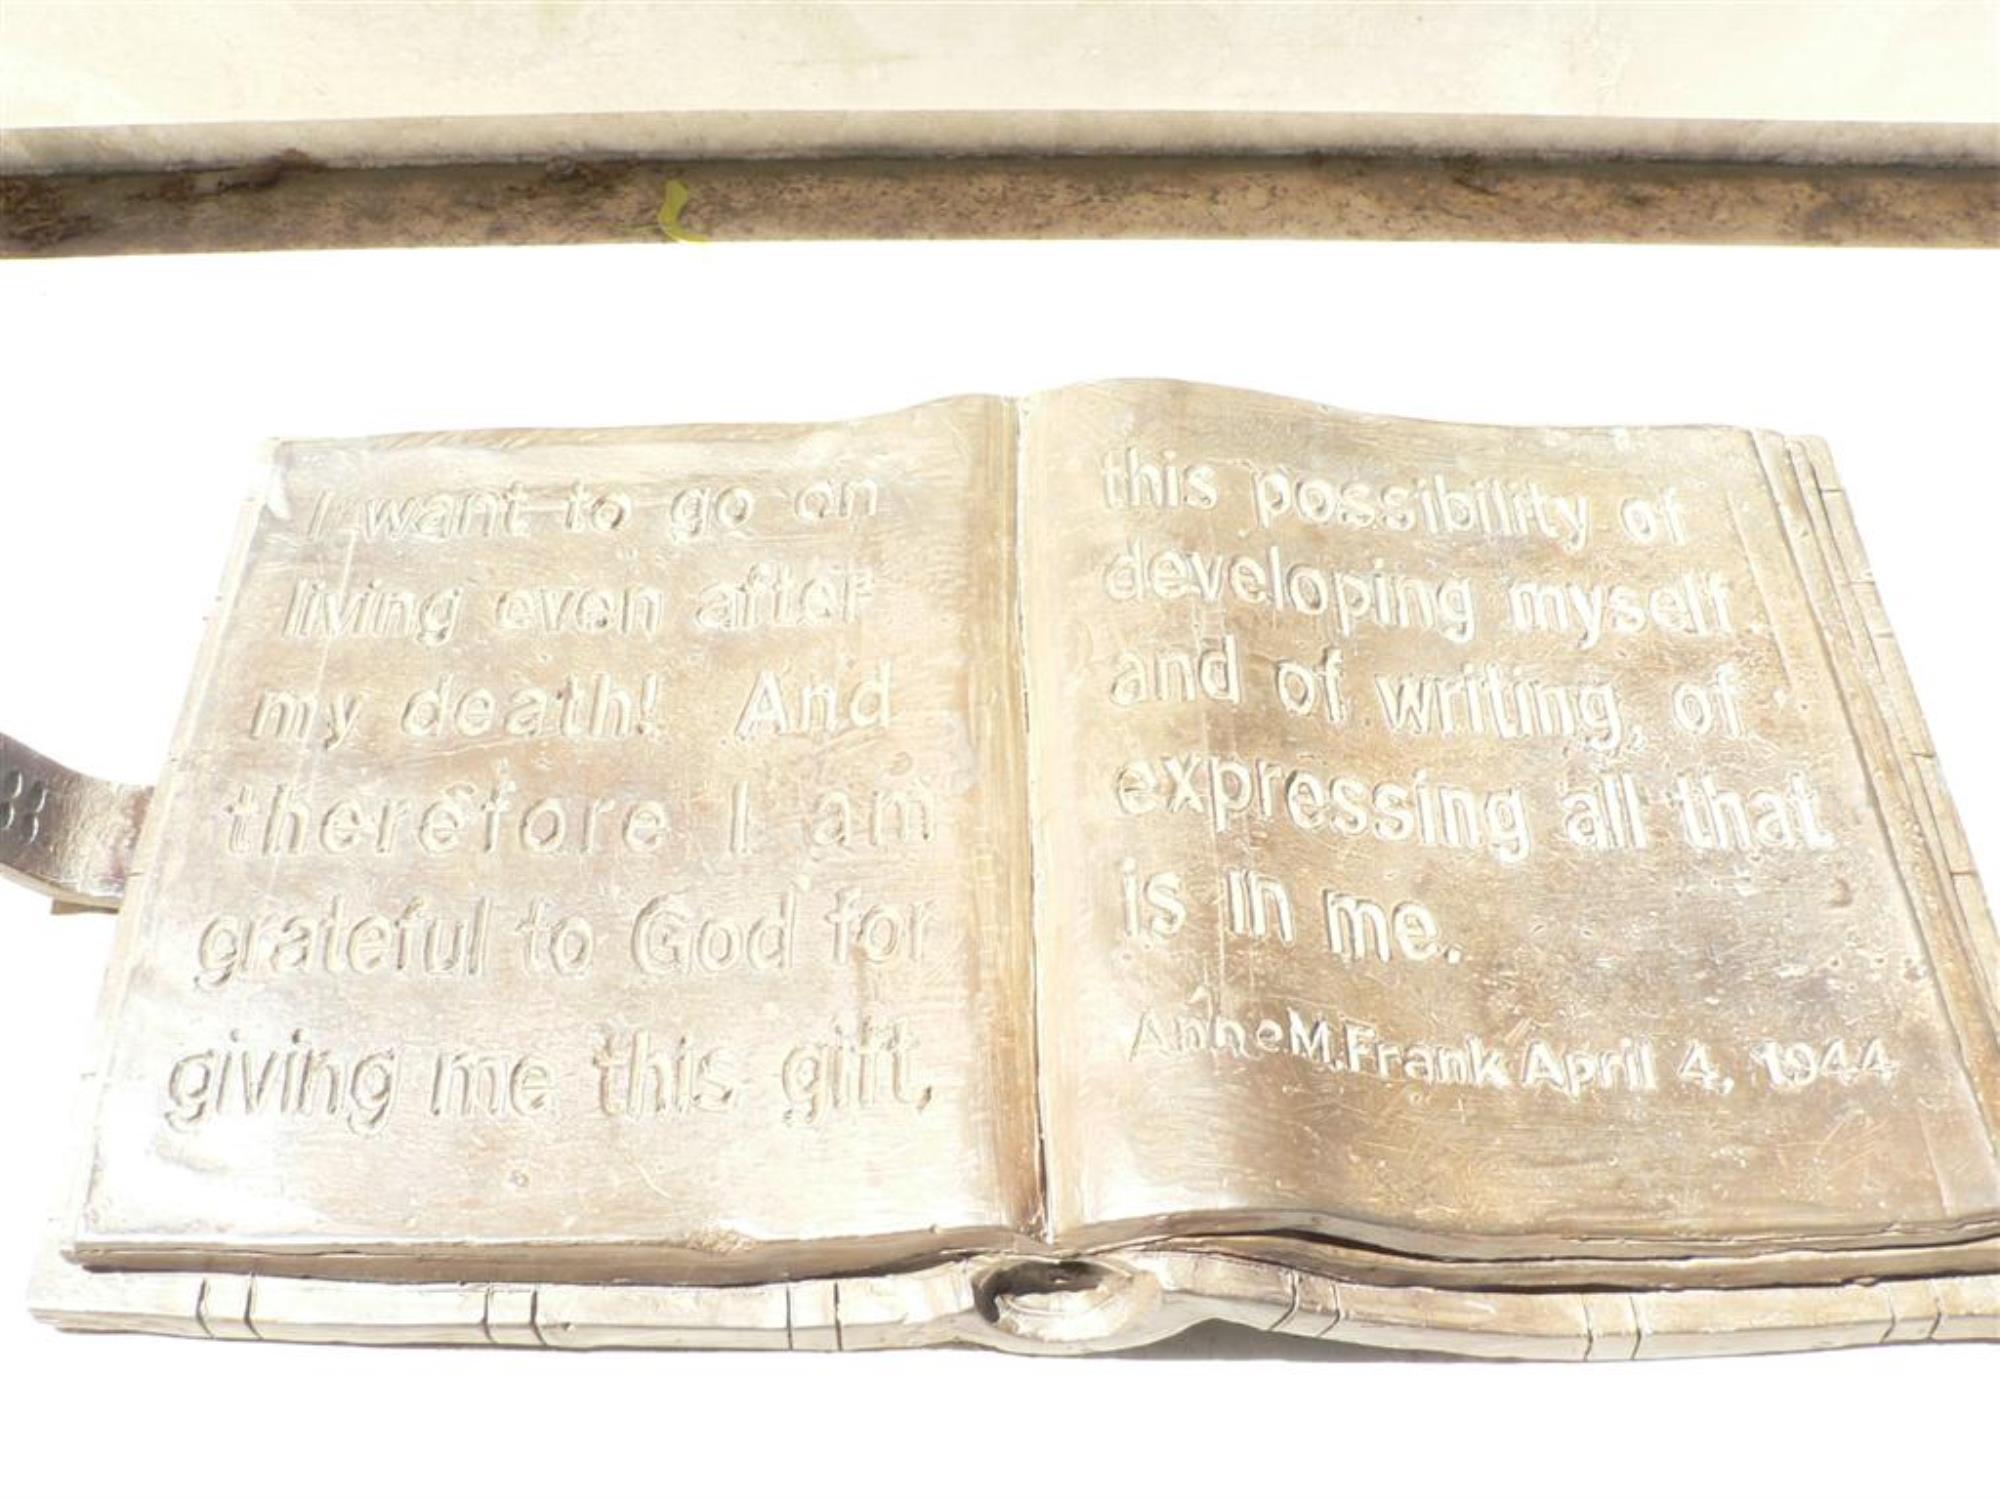 I want to go on
living even after
my death! And
therefore I am
grateful to God for
giving me this gift,
this possibility of
developing myself
and of writing, of
expressing all that
is in me.
Anne M. Frank April 4, 1944